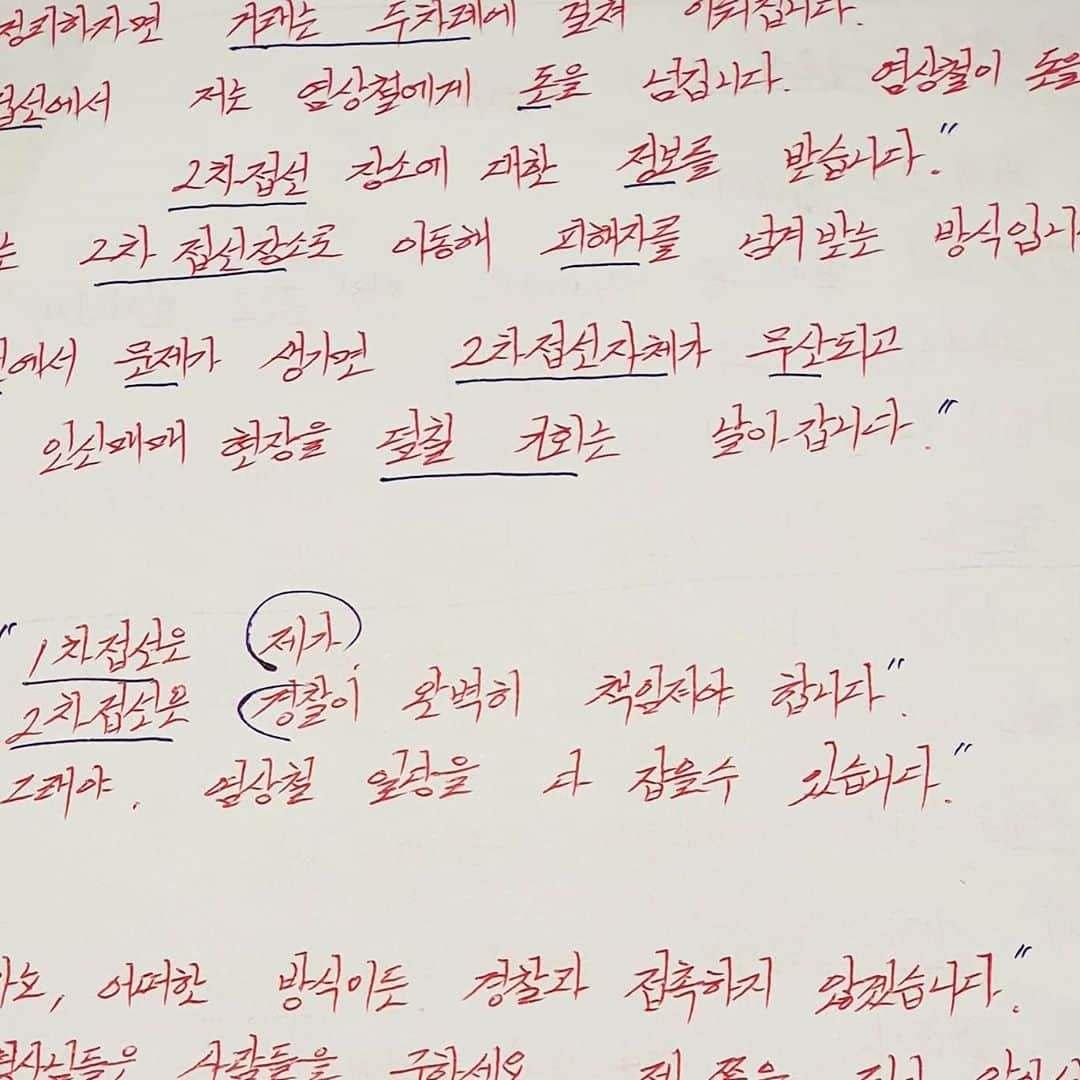 정리하자면 거래는 두차례에 걸쳐 이뤄집니다.
접선에서 저는 염상철에게 돈을 넘깁니다. 염상철이 돈을
2차접선 장소에 대한 정보를 받습니다."
는 2차 접선장소로 이동해 피해자를 넘겨받는 방식입니다
에서 문제가 생기면 2차접선자체가 무산되고
인신매매 현장을 덮칠 기회는 날아갑니다."
"1차접선은 제가,
2차접선은 경찰이 완벽히 책임져야 합니다".
그래야. 염상철 일당을 다 잡을수 있습니다."
어떠한 방식이든 경찰과 접촉하지 않겠습니다."
형사님들은 사람들을 구하세요